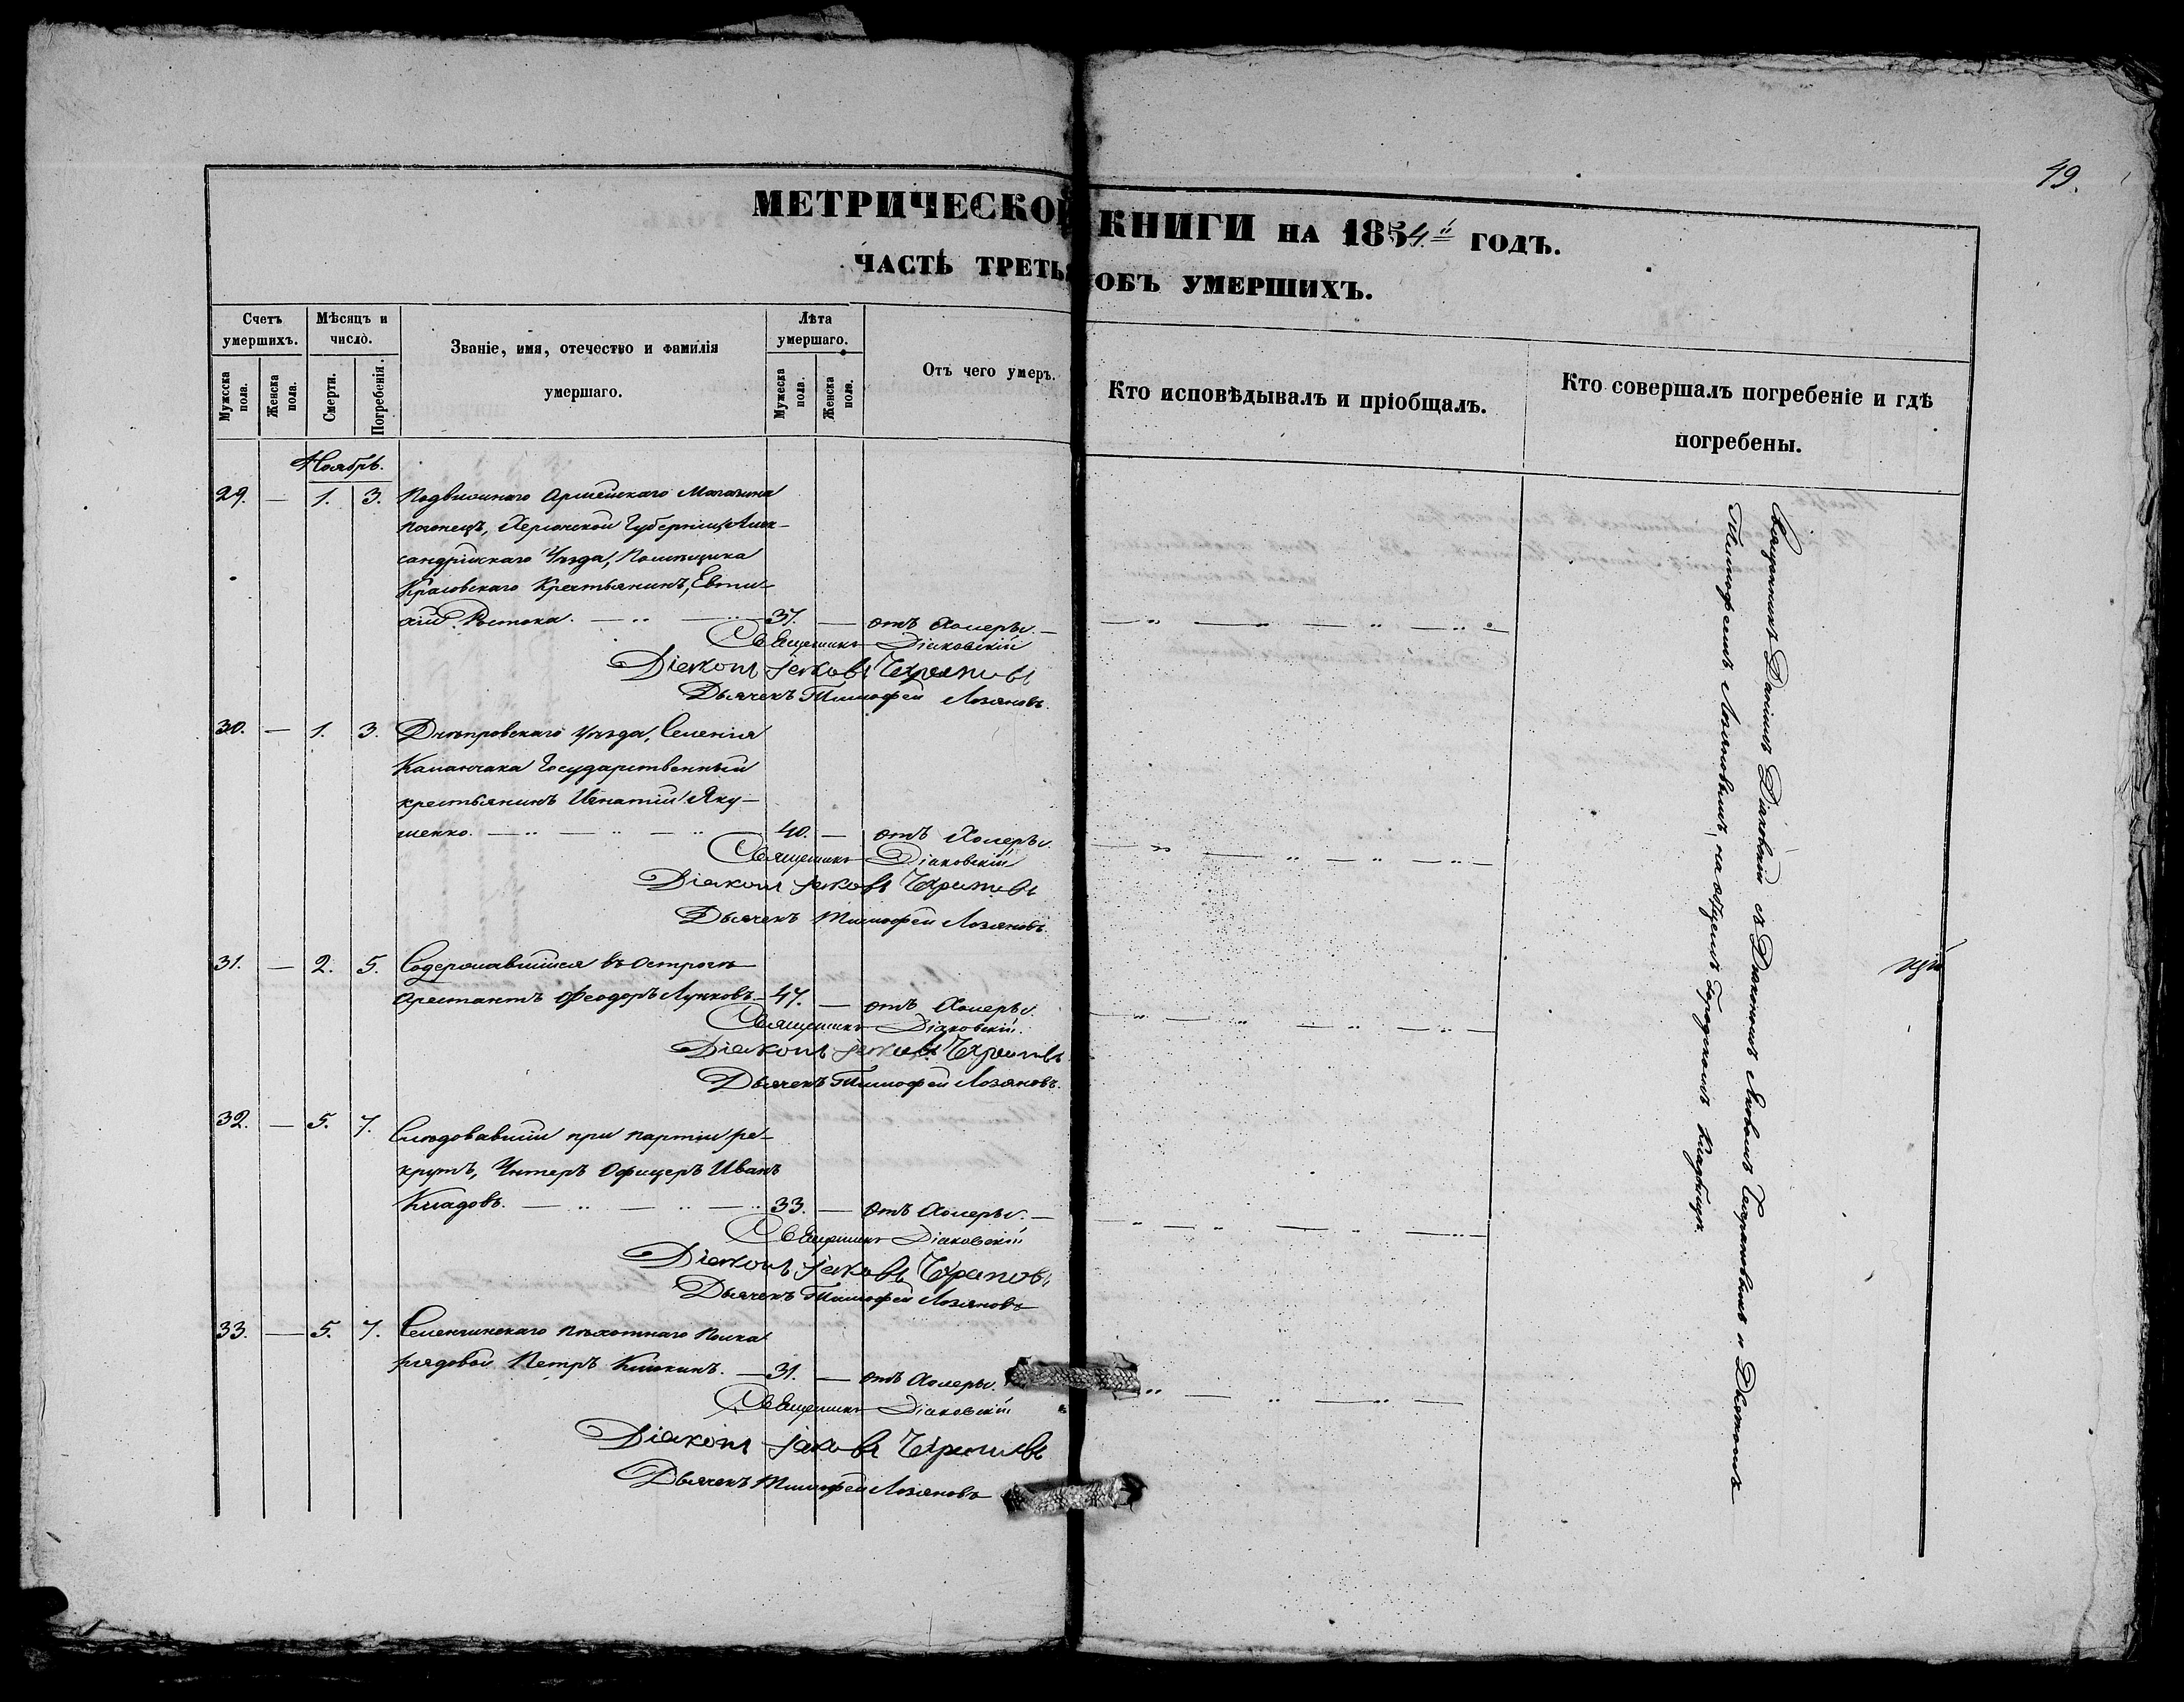 49.
МЕТРИЧЕСКОЙ КНИГИ НА 1854.й ГОДЪ.
ЧАСТЬ ТРЕТЬЯ ОБЪ УМЕРШИХЪ.
Счетъ умершихъ.
Мѣсяцъ и число.
Званіе, имя, отечество и фамилія умершаго.
Лѣта умершаго.
Отъ чего умеръ.
Кто исповѣдывалъ и пріобщалъ.
Кто совершалъ погребеніе и гдѣ погребены.
Мужеска пола.
Женска пола.
Смерти.
Погребенія.
Мужеска пола.
Женска пола.
Ноябрь.
29. — 1. 3. Подвижнаго Армейскаго Магазина
погонецъ, Херсонской Губерніи, Алек-
сандрійскаго Уѣзда, Помѣщика
Красовскаго Крестьянинъ, Евти-
хій Ростока. 37. — отъ Холеры.
Священникъ Діаковскій
Діаконъ Іаковъ
Дьячекъ Тимофей Лозановъ.
30. — 1. 3. Днѣпровскаго Уѣзда, Селенія
Каланчака Государственный
крестьянинъ Игнатій Яку-
шенко. 40. — отъ Холеры.
Священникъ Діаковскій
Діаконъ Іаковъ
Дьячекъ Тимофей Лозановъ.
31. — 2. 5. Содержавшійся въ Острогѣ
Арестантъ Феодоръ Лучковъ. 47. — отъ Холеры.
Священникъ Діаковскій.
Діаконъ Іаковъ
Дьячекъ Тимофей Лозановъ.
32. — 5. 7. Слѣдовавшій при партіи ре-
крутъ, Унтеръ Офицеръ Иванъ
Кладовъ. 33. — отъ Холеры.
Священникъ Діаковскій
Діаконъ Іаковъ
Дьячекъ Тимофей Лозановъ
33. — 5. 7. Селенгинскаго пѣхотнаго Полка
рядовой Петръ Клюкинъ. 31. — отъ Холеры.
Священникъ Діаковскій
Діаконъ Іаковъ
Дьячекъ Тимофей Лозановъ
Священникъ Даніилъ Діаковскій съ Діакономъ Яковомъ и Дьячкомъ
Тимофеемъ Лозановымъ, на общемъ Городскомъ Кладбищѣ.